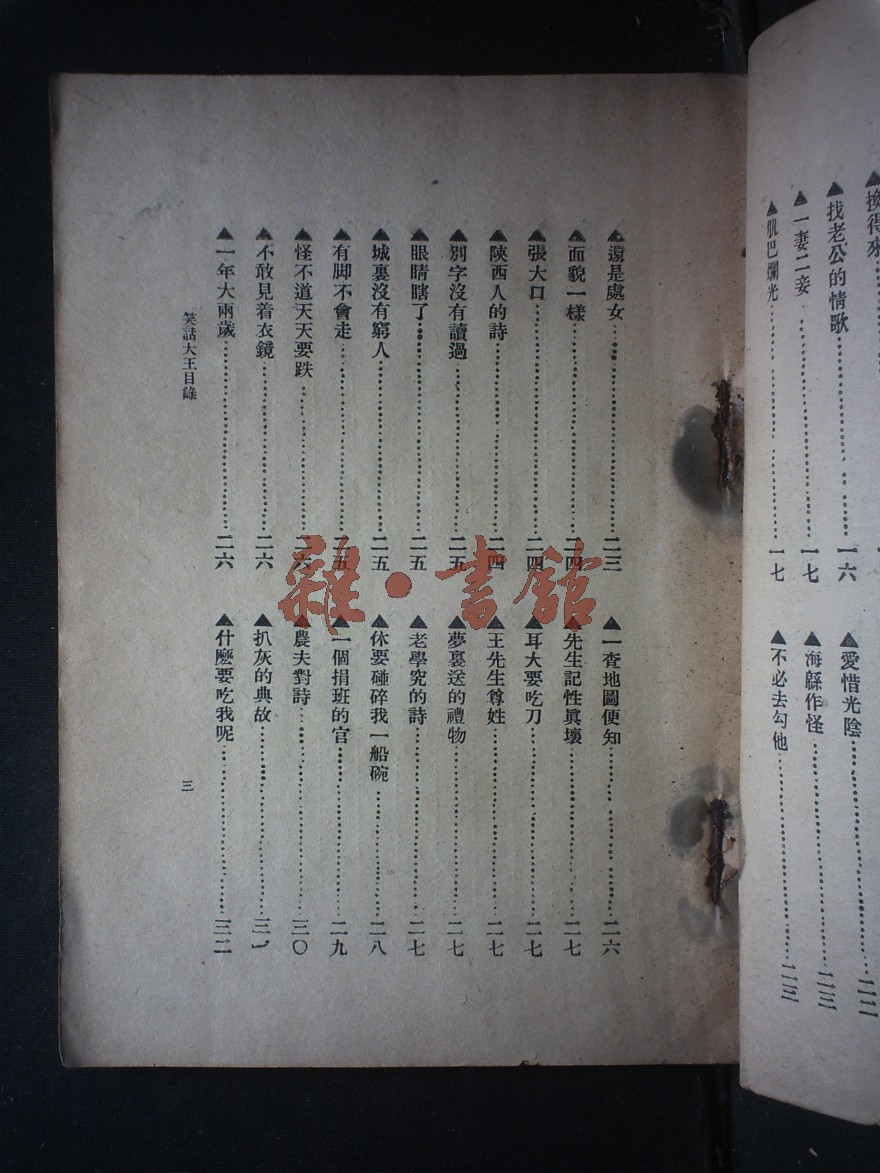 換得來
▲找老公的情歌……一六
▲一妻二妾……一七
▲肌巴爛光……一七
▲愛惜光陰……二二
▲海縣作怪……二三
▲不必去勾他……二三
▲還是處女……二三
▲面貌一樣……二四
▲張大口……二四
▲陝西人的詩……二四
▲別字沒有讀過……二五
▲眼睛瞎了……二五
▲城裏沒有窮人……二五
▲有脚不會走……二五
▲怪不道天天要跌……二六
▲不敢見着衣鏡……二六
▲一年大兩歲……二六
▲一查地圖便知……二六
▲先生記性眞壞……二七
▲耳大要吃刀……二七
▲王先生尊姓……二七
▲夢裏送的禮物……二七
▲老學究的詩……二七
▲休要碰碎我一船碗……二八
▲一個捐班的官……二九
▲農夫對詩……三〇
▲扒灰的典故……三一
▲什麼要吃我呢……三二
笑話大王目錄
三
雜·書館